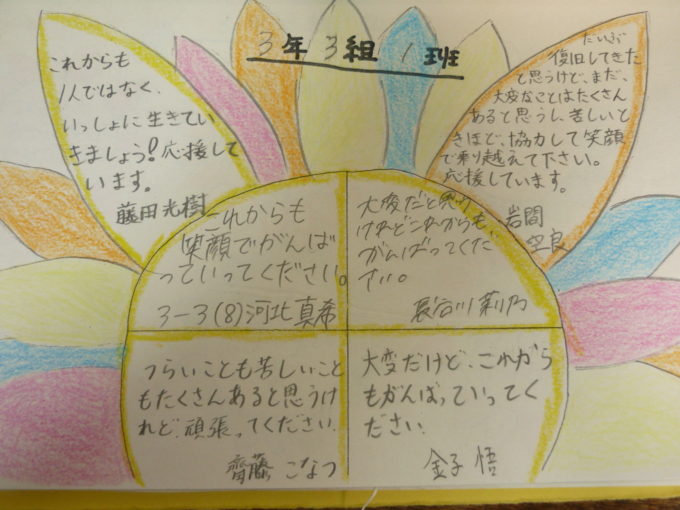 3年3組 1班
これからも
1人ではなく、
いっしょに生きてい
きましょう!応援して
います。
藤田光樹
だいぶ
復旧してきた
と思うけど、まだ、
大変なことはたくさん
あると思うし、苦しいと
きほど、協力して笑顔
で乗り越えて下さい。
応援しています。
岩間
空良
これからも
笑顔でがんば
っていってください。
3-3(8)河北真希
大変だと思う
けれどこれからも、
がんばってくだ
さい。
長谷川莉乃
つらいことも苦しいこと
もたくさんあると思うけ
れど、頑張ってください。
齊藤 こなつ
大変だけど、これから
もがんばっていってく
ださい。
金子 悟